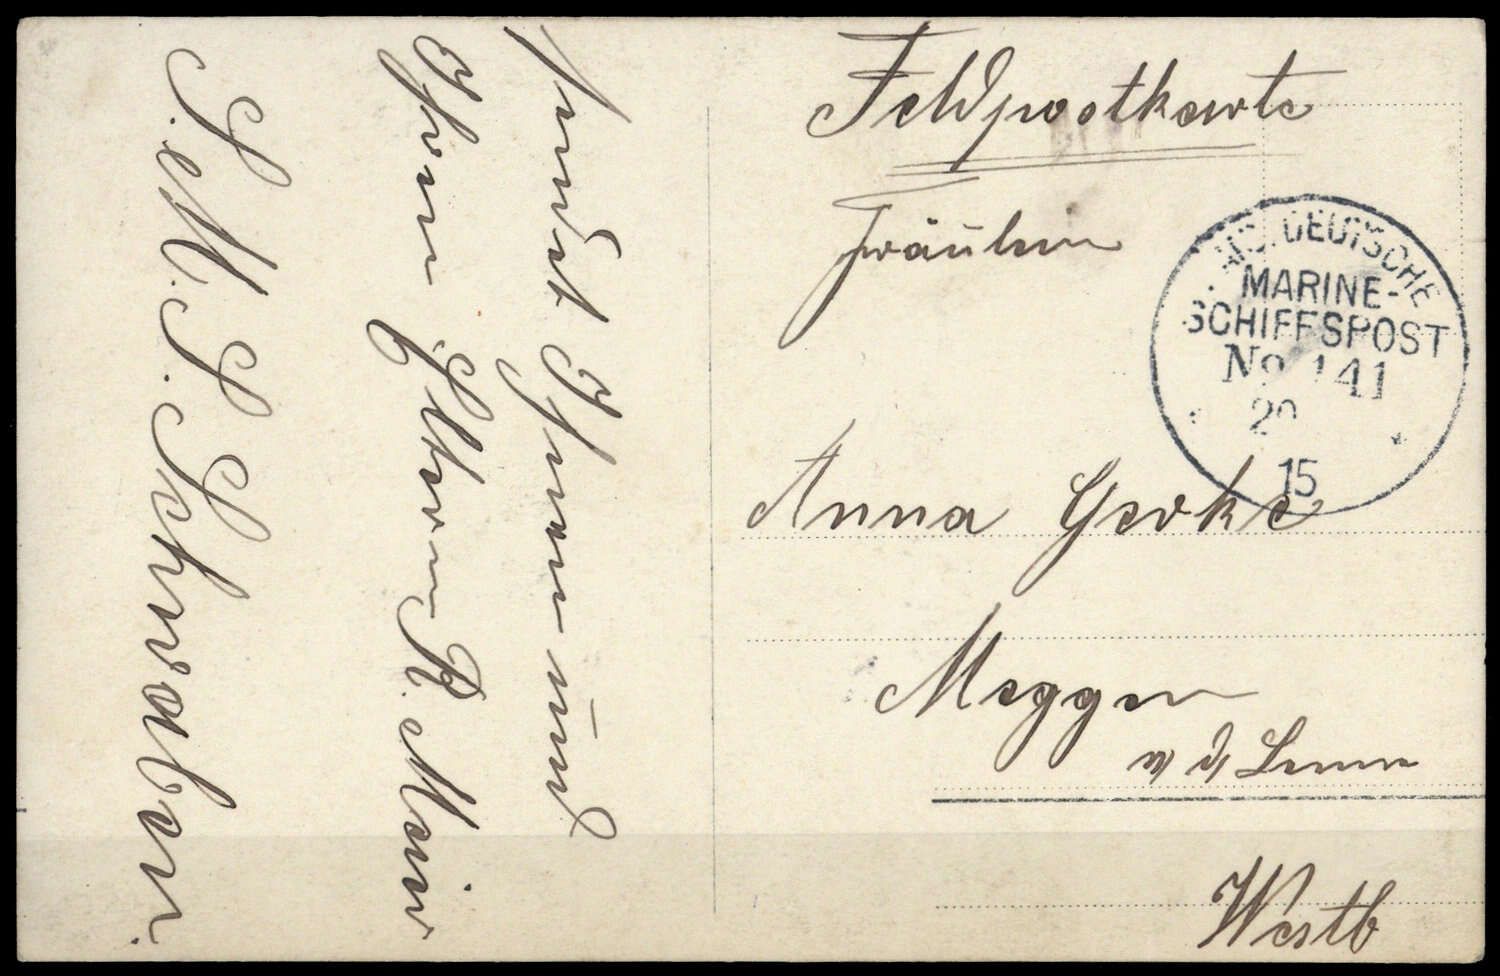 Feldpostkarte
Fräulein
Anna Gerke
Meggen
a/ d/ Lenne
Westf
DEUTSCHE
MARINE-
SCHIFFSPOST
No 141
20
15
sendet Ihnen und
Ihren Eltern R. Maier
S.M.S. Schwaben.